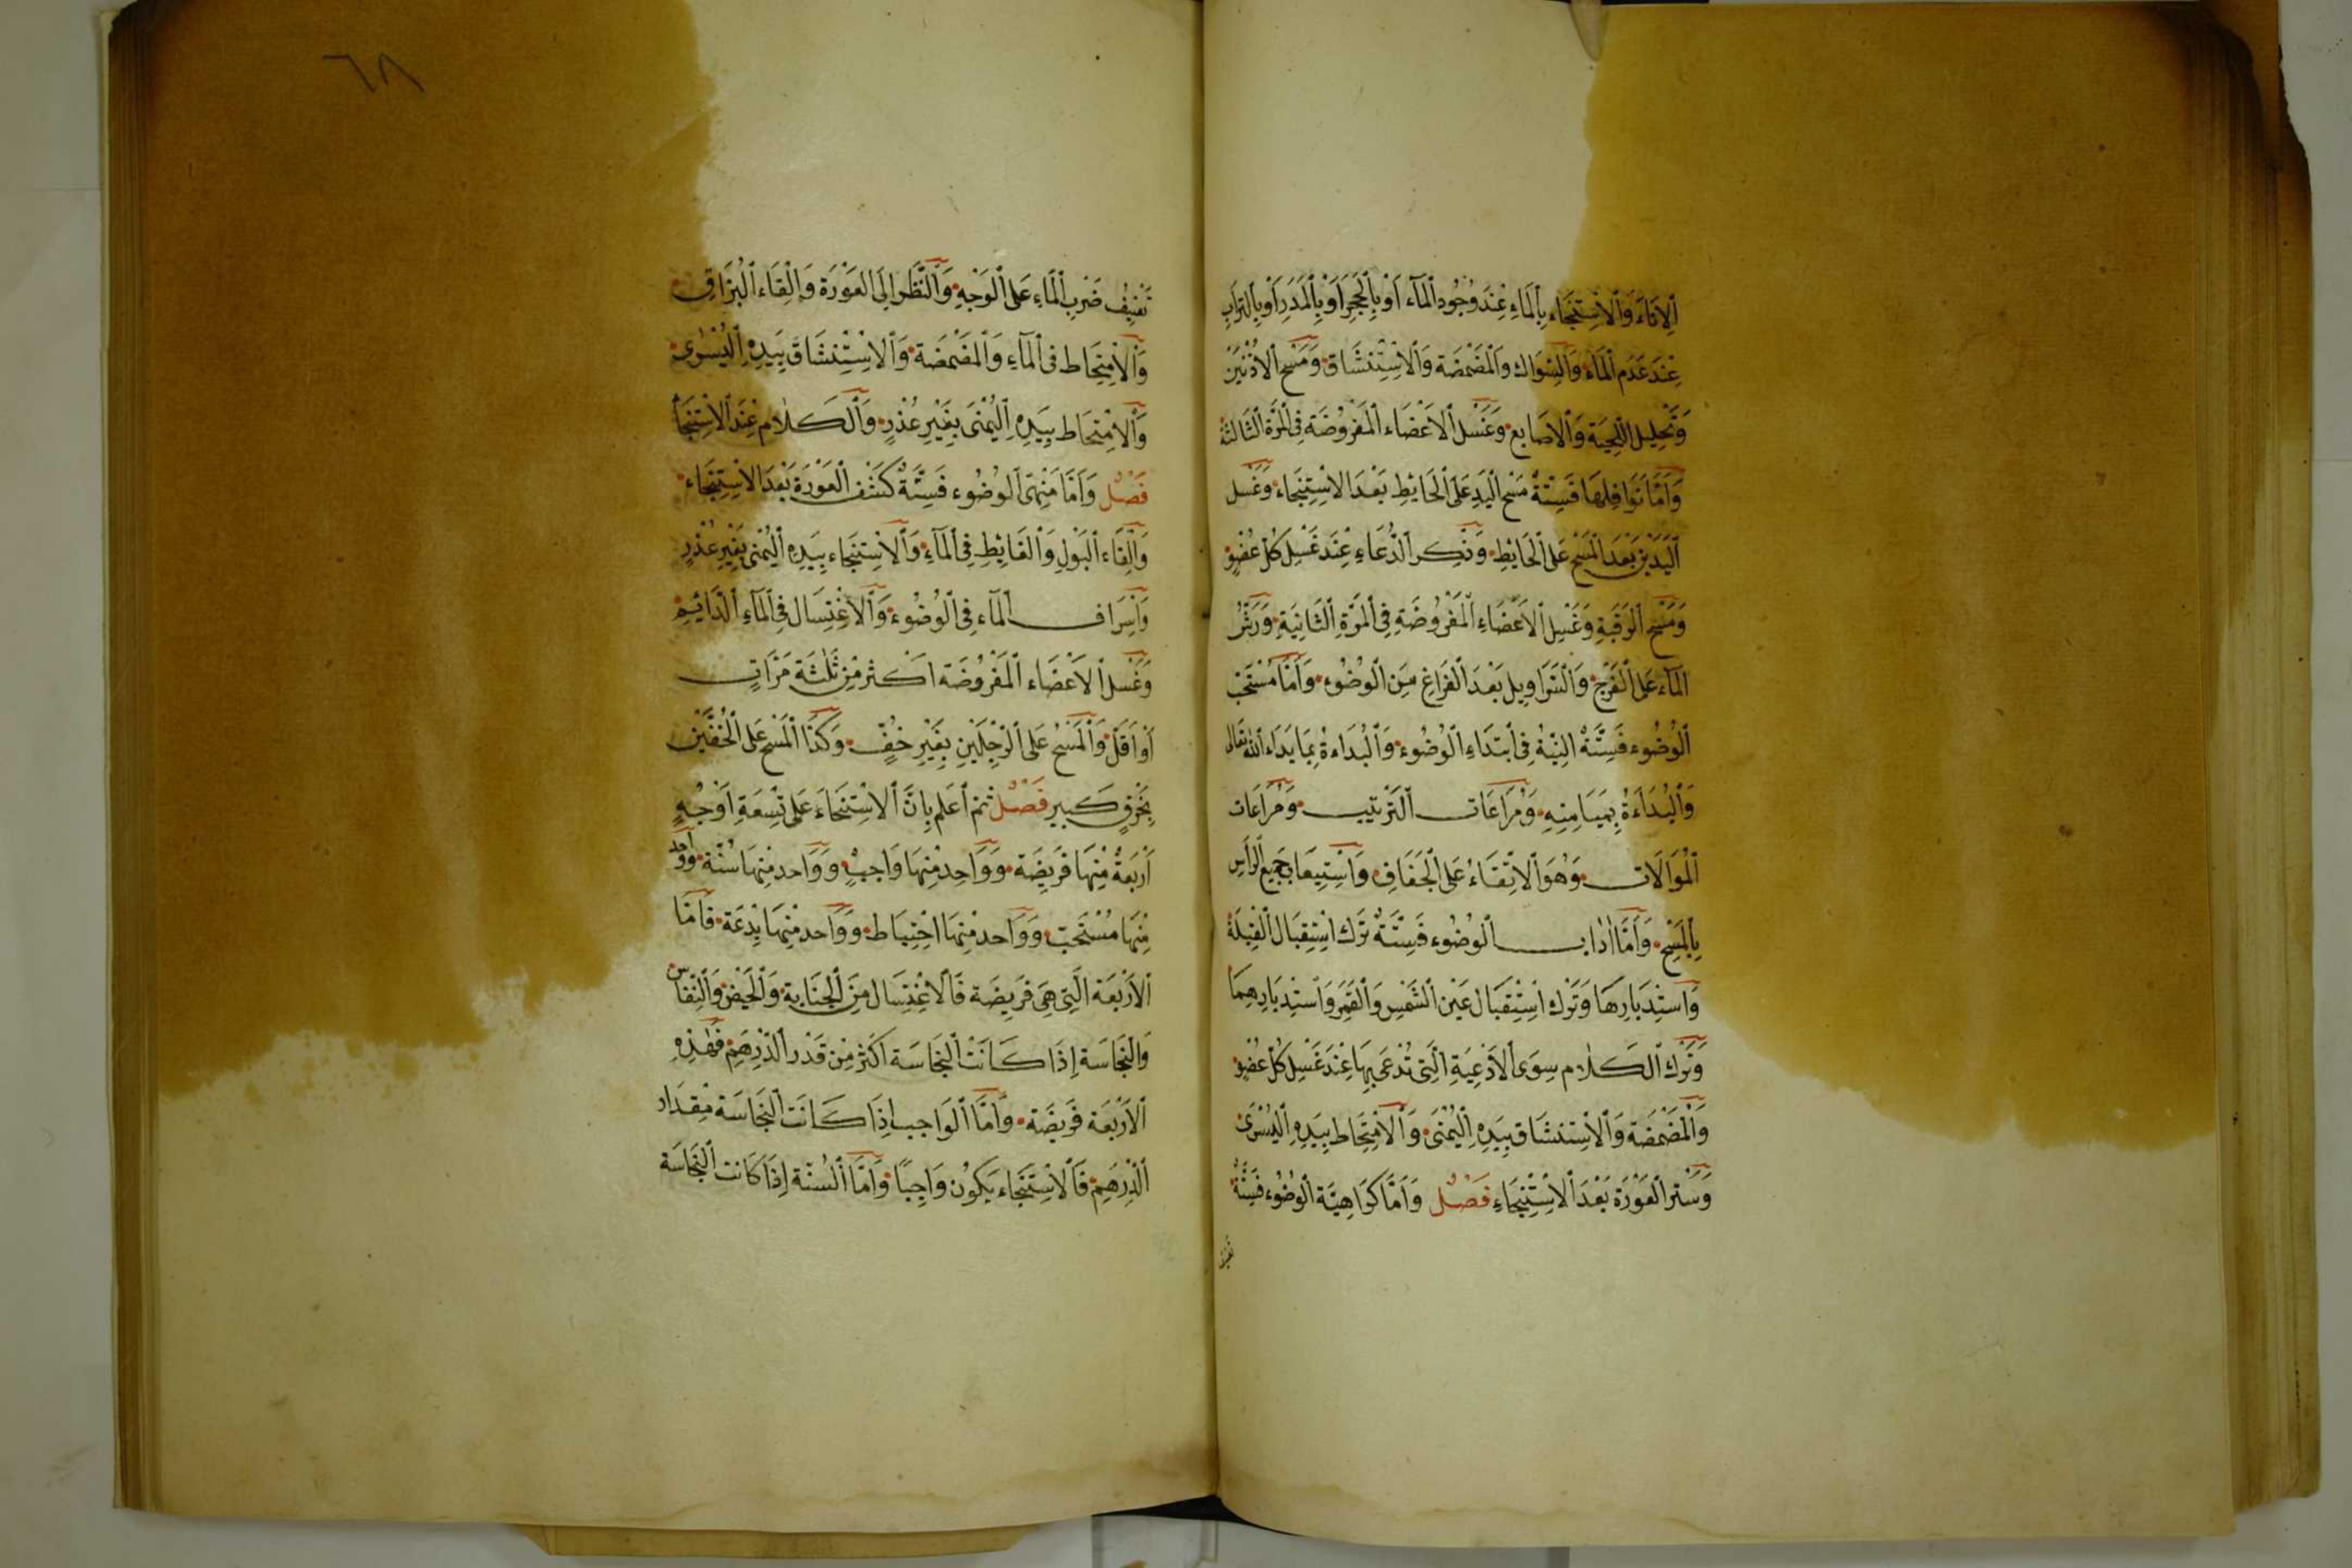 اَلْاِنَاءَ وَالْاِسْتِنْجَاءِ بِالْمَاءِ عِنْدَ وُجُودِ الْمَآءِ اَوْ بِالْحَجَرِ اَوْ بِالْمَدَرِ اَوْ بِالتُّرَابِ
عِنْدَ عَدَمِ الْمَاءِ وَالسِّوَاك وَالْمَضْمَضَة وَالْاِسْتِنْشَاق وَمَسْح الْاُذْنَيْنِ
وَتَحْلِيل اللِّحْيَة وَالْاَصَابِع وَغَسْل الْاَعْضَاء الْمَفْرُوضَة فِي الْمَرَّة الثَّالثَة
وَاَمَّا نَوَافِلهَا فَسِتَّةٌ مَسْح الْيَدِ عَلَى الْحَائِطِ بَعْدَ الاِسْتِنْجَاء وَغَسْل
اَلْيَدَيْنِ بَعْدَ الْمَسْحِ عَلَى الْحَائِطِ وَذِكر الدُّعَاءِ عِنْدَ غَسْلِ كُلّ عُضْوٍ
وَمَسْحِ الرَّقَبَةِ وَغَسْلِ الْاَعْضَاءِ الْمَفْرُوضَةِ فِي الْمَرَّةِ الثَّانِيَةِ وَرَشُّ
الْمَآءِ عَلَى الْفَرْجِ وَالسَّرَاوِيل بَعْدَ الْفَرَاغِ مِنَ الْوُضُوءِ وَاَمَّا مُسْتَحَبّ
اَلْوُضُوء فَسِتَّةٌ النِّيَّةُ فِي اْبتَدَاءِ الْوُضُوءِ وَالْبُدَاءةُ بِمَا بَدَاءَ اللّٰه تَعَالى
وَالْبُدَاءَةُ بِمَيَامِنِهِ وَمُرَاعَات التَّرْتيب وَمُرَاعَات
اَلْمُوَالَات وَهُوَ الْاِتِّقَاءُ عَلَى الْجَفَافِ وَاسْتِيعَاب جَمِيعِ الرَّأسِ
بِالْمَسْحِ وَاَمَّا اٰدٰاب الْوُضُوء فَسِتَّةٌ تَرْك اسْتِقْبَال الْقِبْلَة
وَاسْتِدْبَارِهَا وَتَرْك اسْتِقْبَال عَيْن الشَّمْس وَالْقَمَر وَاسْتِدبَارِهِمَا
وَتَرْك الْكَلَام سِوَى الْاَدْعِيَةِ الَّتِي تُدْعَى بِهَا عِنْدَ غَسْلِ كُلّ عُضْوٍ
وَالْمَضْمَضَة وَالْاِسْتِنْشَاق بِيَدِهِ الْيُمْنَى وَالْاِمْتِحَاط بِيَدِهِ الْيُسْرَى
وَسَتْر الْعَوْرَة بَعْدَ الْاِسْتِنْجَاءِ فَصْل وَاَمَّا كَرَاهِيَّة الْوُضُوء فَسِتَّةٌ
تعنيف
٦٨
تَعْنِيْف ضَرْب الْمَاءِ عَلَى الْوَجْهِ وَالنَّظَر اِلَى الْعَوْرَة وَاِلْقَاء الْبُزَاقِ
وَالْاِمْتِحَاط فِي الْمَآءِ وَالْمَضْمَضَة وَالْاِسْتِنْشَاقَ بِيَدِهِ الْيُسْرٰى
وَالْاِمْتِحَاط بِيَدِهِ الْيُمْنَى بِغَيْرِ عُذْرٍ وَالْكَلَام عِنْدَ الْاِسْتِنْجَأ
فَصْل وَاَمَّا مَنْهِىّ الْوُضُوء فَسِتَّةٌ كَشْف الْعَوْرَة بَعْدَ الاسْتِنْجَاء
وَاِلْقَاء الْبَوْلِ وَالْغَائِطِ فِي الْمَآءِ وَالْاِسْتِنْجَاء بِيَدِهِ الْيُمْنَى بِغَيْرِ عُذْرٍ
وَاِسْرَاف الْمَآءِ فِي الْوُضُوء وَالْاِغْتِسَال فِي الْمَآءِ الدَّائِمِ
وَغَسْل الْاَعْضَاء الْمَفْرُوضَة اَكْثر مِن ثَلٰثَة مَرَّاتٍ
اَوْ اَقَلّ وَالْمَسْحُ عَلَى الرِّجْلَيْنِ بِغَيْرِ خُفٍّ وَكَذَا الْمَسْح عَلَى الْخُفَّيْنِ
بِخَرْقٍ كَبِير فَصْل ثُمّ اعْلَم بِاَنَّ الاسْتِنْجَاءَ عَلَى تِسْعَةِ اَوْجُهٍ
اَرْبَعَةٌ مِنْهَا فَرِيضَة وَوَاحِد مِنْهَا وَاجبٌ وَوَاحد مِنهَا سُنَّة وَوَاحد
مِنْهَا مُسْتَحَبّ وَوَاحد مِنْهَا احْتِيَاط وَوَاحد مِنْهَا بِدْعَة فَاَمَّا
الْاَرْبَعَة الَّتِي هِىَ فَرِيضَة فَالْاِغْتِسَال مِنَ الْجَنَابَة وَالْحَيْض وَالنِّفَاس
وَالنَّجَاسَة اِذَا كَانَتْ النَّجَاسَة اَكْثَر مِنْ قَدْر الدِّرْهَمِ فَهٰذِهِ
الْاَرْبَعَة فَرِيضَة وَاَمَّا الْوَاجب اِذَا كَانَت النَّجَاسَة مِقْدَار
اَلدِّرْهَمِ فَالْاِسْتِنْجَاء يَكُوْن وَاجِبًا وَاَمَّا السُّنَّة اِذَا كَانت النَّجَاسَة